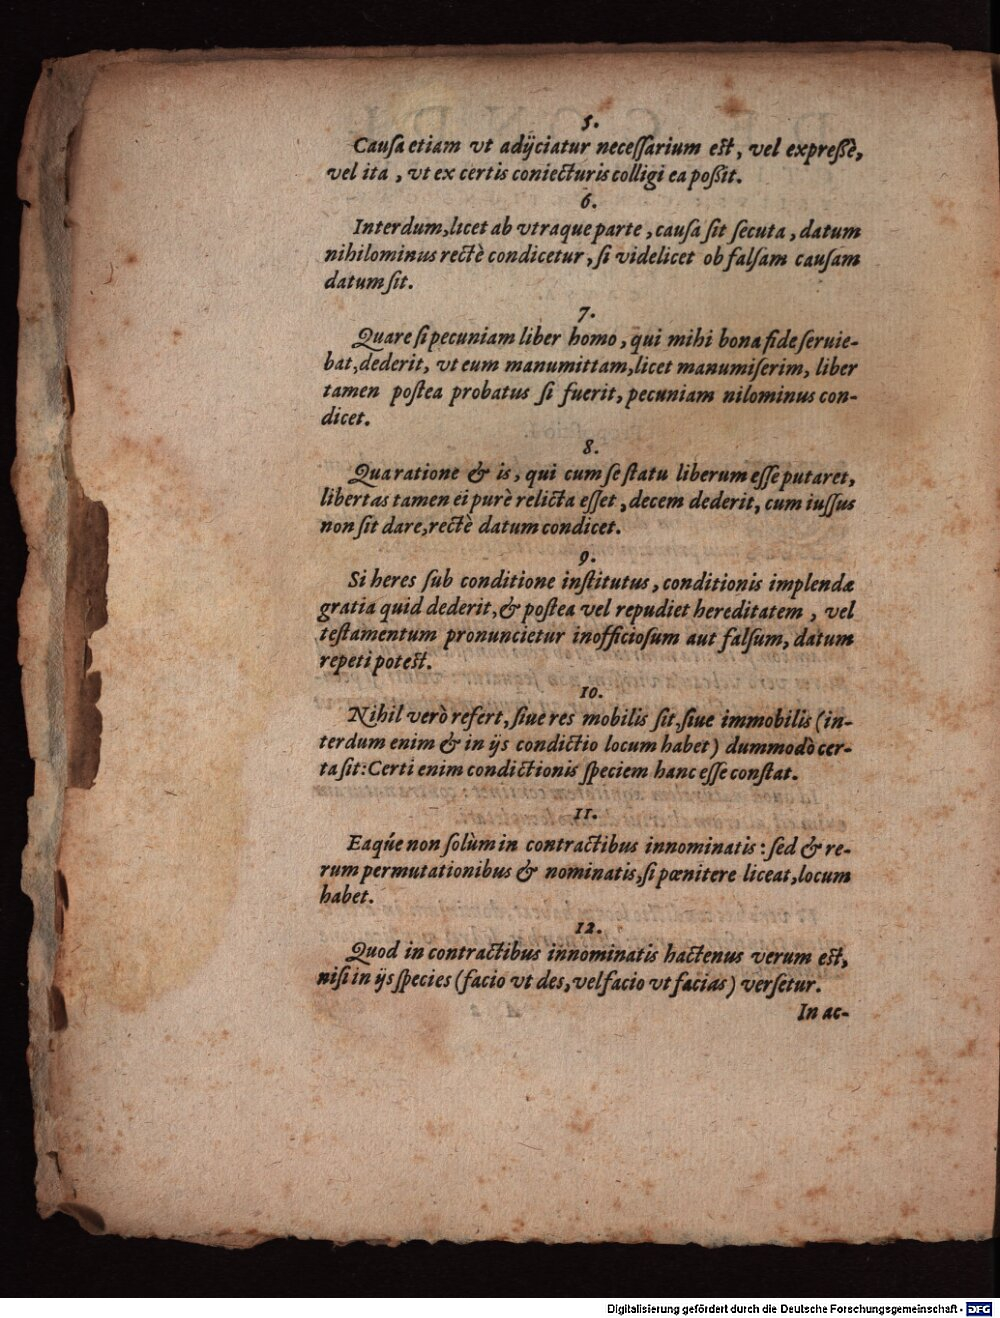 5.
Cauſa etiam vt adijciatur neceſſarium eſt, vel expreßè,
vel ita, vt ex certis coniecturis colligi ea poßit.
6.
Interdum, licet ab vtraque parte, cauſa ſit ſecuta, datum
nihilominus rectè condicetur, ſi videlicet ob falſam cauſam
datum ſit.
7.
Quare ſi pecuniam liber homo, qui mihi bona fide ſeruie-
bat, dederit, vt eum manumittam, licet manumiſerim, liber
tamen poſtea probatus ſi fuerit, pecuniam nilominus con-
dicet.
8.
Qua ratione & is, qui cum ſe ſtatu liberum eſſe putaret,
libertas tamen ei purè relicta eſſet, decem dederit, cum iuſſus
non ſit dare, rectè datum condicet.
9.
Si heres ſub conditione inſtitutus, conditionis implendæ
gratia quid dederit, & poſtea vel repudiet hereditatem, vel
teſtamentum pronuncietur inofficioſum aut falſum, datum
repeti poteſt.
10.
Nihil verò refert, ſiue res mobilis ſit, ſiue immobilis (in-
terdum enim & in ijs condictio locum habet) dummodò cer-
ta ſit: Certi enim condictionis ſpeciem hanc eſſe conſtat.
11.
Eaqúe non ſolùm in contractibus innominatis: ſed & re-
rum permutationibus & nominatis, ſi pœnitere liceat, locum
habet.
12.
Quod in contractibus innominatis hactenus verum eſt,
niſi in ijs ſpecies (facio vt des, vel facio vt facias) verſetur.
In ac-
Digitalisierung gefördert durch die Deutsche Forschungsgemeinschaft - DFG